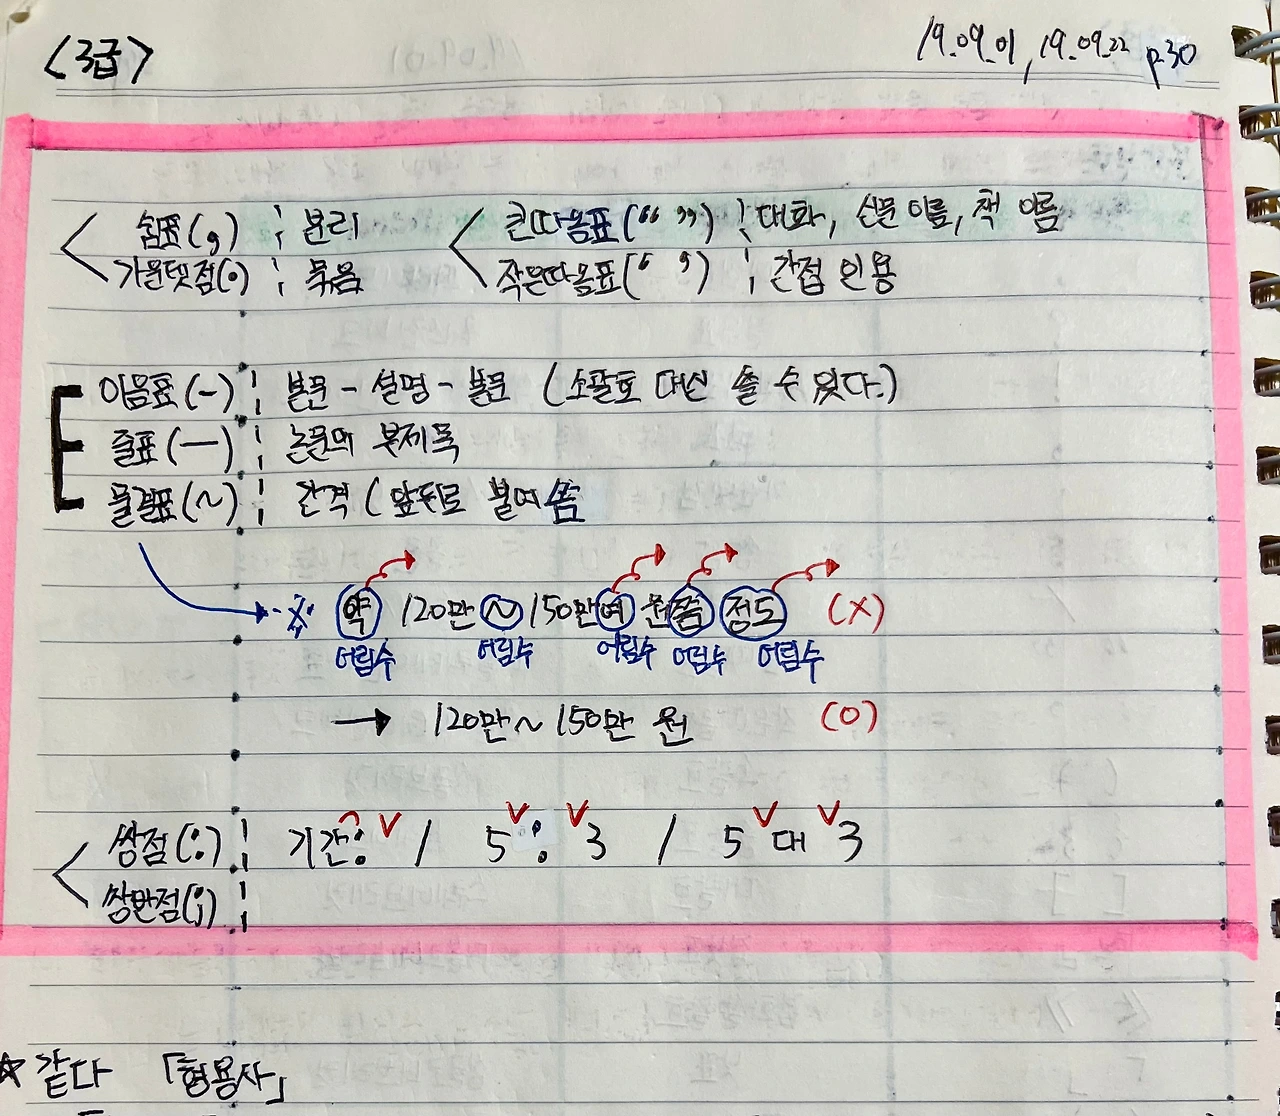 <3급>
19.09.01, 19.09.22 p.30
쉼표(,) ; 분리
가운뎃점(·) ; 묶음
큰따옴표(“ ”) ; 대화, 신문 이름, 책 이름
작은따옴표(‘ ’) ; 간접 인용
이음표(-) ; 본문 - 설명 - 본문 (소괄호 대신 쓸 수 있다.)
줄표(—) ; 논문의 부제목
물결표(~) ; 간격 (앞뒤로 붙여 씀
※ 약 120만 ~ 150만여 원쯤 정도 (X)
어림수 어림수 어림수 어림수 어림수
→ 120만 ~ 150만 원 (O)
쌍점(:) ; 기간: / 5 : 3 / 5 대 3
쌍반점(;) ;
☆ 같다 「형용사」